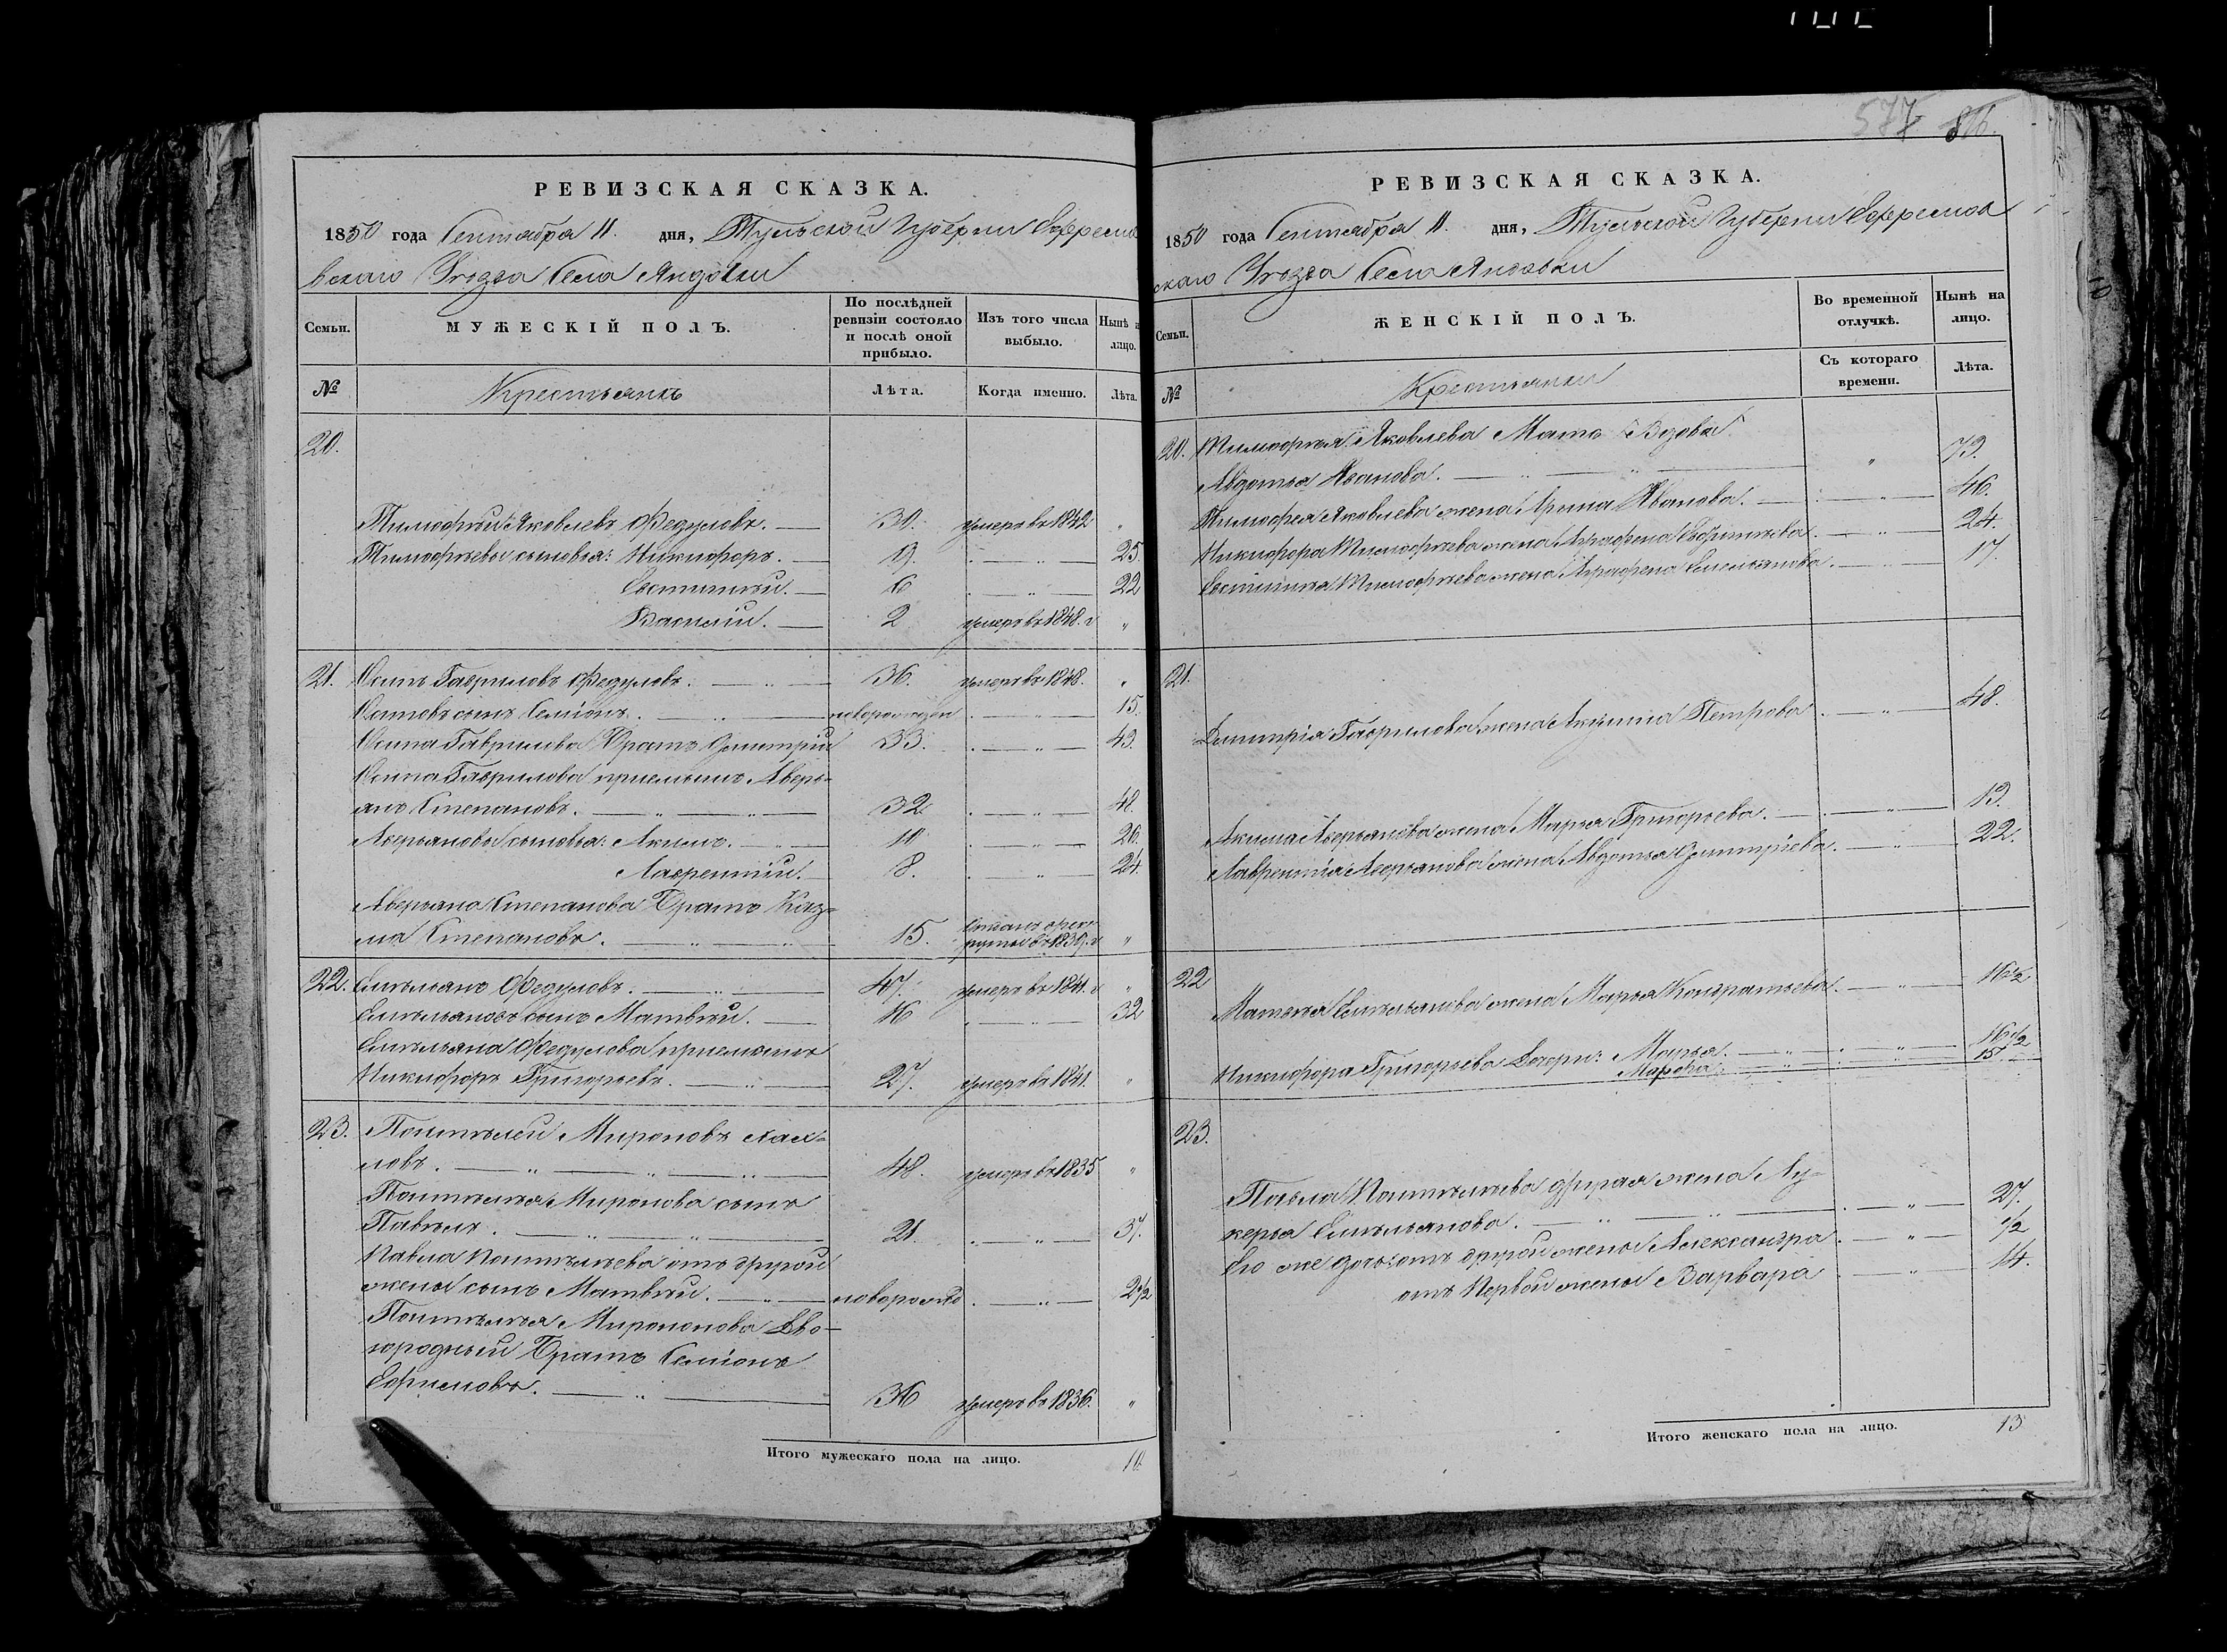 577
РЕВИЗСКАЯ СКАЗКА.
1850 года Сентября 11. дня, Тульской Губернии Ефремов
скаго Уѣзда Села Яндовки
Семьи.
МУЖЕСКІЙ ПОЛЪ.
По послѣдней ревизіи состояло и послѣ оной прибыло.
Изъ того числа выбыло.
Нынѣ на лицо.
№
Крестьянъ
Лѣта.
Когда именно.
Лѣта.
20.
Тимофѣй Яковлевъ Федуловъ. — 30. умеръ въ 1842 „
Тимофѣевы сыновья: Никифоръ. — 9. — „ — 25.
Евстигнѣй. — 6 — „ — 22
Василій. — 2 умеръ въ 1848. г „
21. Осипъ Гавриловъ Федуловъ. — „ — 36. умеръ въ 1848. „
Осиповъ сынъ Семіонъ. — „ — новорожден — „ — 15.
Осипа Гаврилова Братъ Дмитрій 33. — „ — 49.
Осипа Гаврилова приемышъ Аверь-
янъ Степановъ. — „ — „ — 32 — „ — 48.
Аверьяновы сыновья: Акимъ. — „ — 10 — „ — 26.
Лаврентій. 8. — „ — 24.
Аверьяна Степанова Братъ Куз-
ма Степановъ. — „ — „ 15. отданъ в рек-
руты въ 1839. г „
22. Емельянъ Федуловъ. — „ — 47. умеръ въ 1841. г „
Емельяновъ сынъ Матвѣй. — 16 — „ — 32
Емельяна Федулова приемышъ
Никифоръ Григорьевъ. — „ — 27. умеръ въ 1841. „
23. Понтелей Мироновъ
новъ. — „ — „ — „ 48. умеръ въ 1835 „
Понтелѣя Миронова сынъ
Павелъ. — „ — „ — 21 — „ — 37.
Павла Понтелѣева отъ другой
жены сынъ Матвѣй. — „ — новорожд — „ — 2 1/2
Понтелѣя Миронова Дво-
городный Братъ Семіонъ
Ефимовъ. — „ — 36 умеръ въ 1836. „
Итого мужескаго пола на лицо. 10.
РЕВИЗСКАЯ СКАЗКА.
1850 года Сентября 11. дня, Тульской Губерни Ефремов
скаго Уѣзда Села Яндовки
Семьи.
ЖЕНСКІЙ ПОЛЪ.
Во временной отлучкѣ.
Нынѣ на лицо.
№
Крестьянки
Съ котораго времени.
Лѣта.
20. Тимофѣя Яковлева Мать Вдова
Авдотья Иванова. — „ — „ — „ 73.
Тимофея Яковлева жена Арина Иванова. — „ — 46.
Никифора Тимофѣева жена Аграфена — „ — 24.
Евстигнѣя Тимофѣева жена Аграфена Емельянова. — „ — 17.
21.
Дмитрія Гаврилова жена Акулина Петрова — „ — 48.
Акима Аверьянова жена Марья Григорьева. — „ — 19.
Лаврентія Аверьянова жена Авдотья Дмитріева. — „ — 22.
22
Матвѣя Емельянова жена Марья Кондратьева. — „ —
Никифора Григорьева Дочери: Марья. — „ — 16 1/2
15
23.
Павла Понтелѣева другая жена Лу-
керья Емельянова. — „ — „ — „ — 27.
Его же дочь отъ другой жены Александра — „ — 1/2
отъ Первой жены Варвара — „ — 14.
Итого женскаго пола на лицо. 13